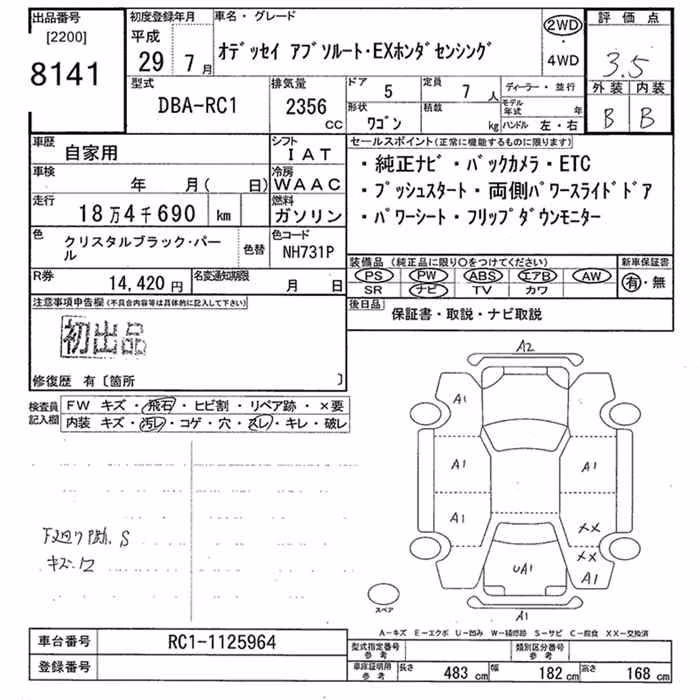 出品番号
[2200]
8141
初度登録年月
平成
29 7月
車名・グレード
オデッセイ アブソルート・EXホンダセンシング
2WD
・
4WD
評価点
3.5
外装 内装
B B
型式
DBA-RC1
排気量
2356
CC
ドア
5
定員
7 人
形状
ワゴン
積載
kg
ディーラー・並行
モデル年式 年
ハンドル 左・右
車歴
自家用
シフト
IAT
車検
年 月( 日)
冷房
WAAC
走行
18万4千690 km
燃料
ガソリン
色
クリスタルブラック・パール
色替
色コード
NH731P
R券
14,420円
名変通知期限
月 日
セールスポイント(正常に機能するものに限ります)
・純正ナビ・バックカメラ・ETC
・プッシュスタート・両側パワースライドドア
・パワーシート・フリップダウンモニター
装備品 (純正品に限り○をつけてください)
PS PW ABS エアB AW
SR ナビ TV カワ
新車保証書
有・無
後日品
保証書・取説・ナビ取説
注意事項申告欄(不具合内容等は具体的に記入して下さい)
初出品
修復歴 有〔箇所 〕
検査員記入欄
FW キズ・飛石・ヒビ割・リペア跡・×要
内装 キズ・汚レ・コゲ・穴・スレ・キレ・破レ
S
キズ・
A2
A1
A1 A1
A1
××
××
UA1 A1
A1
スペア
A－キズ E－エクボ U－凹み W－補修跡 S－サビ C－腐食 XX－交換済
車台番号
RC1-1125964
登録番号
型式指定番号
参考
類別区分番号
参考
車庫証明用
参考
長さ 483 cm 幅 182 cm 高さ 168 cm